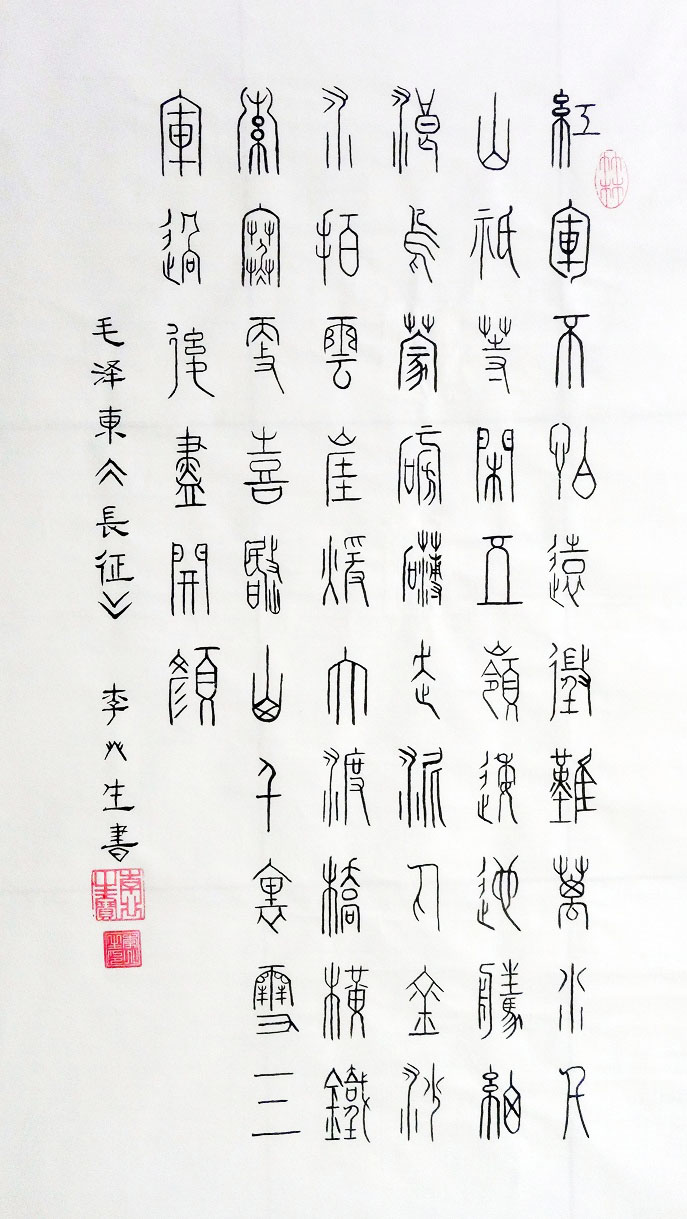 紅軍不怕遠徵難萬水千
山祇等閑五嶺逶迤騰細
浪烏蒙磅礴走泥丸金沙
水拍雲崖暖大渡橋橫鐵
索寒更喜岷山千裏雪三
軍過後盡開顏
毛泽東《長征》 李生書